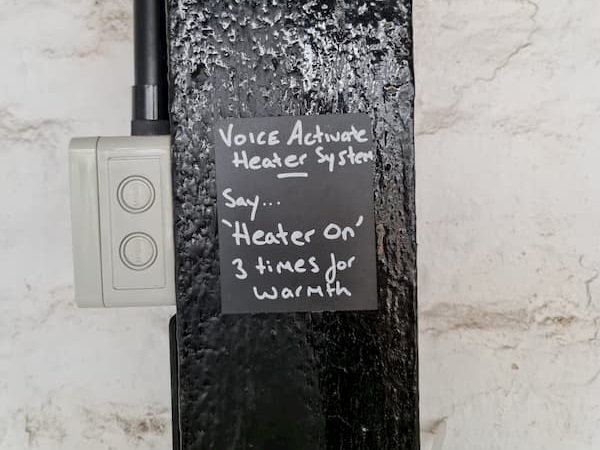 Voice Activate
Heater System
Say...
'Heater On'
3 times for
warmth